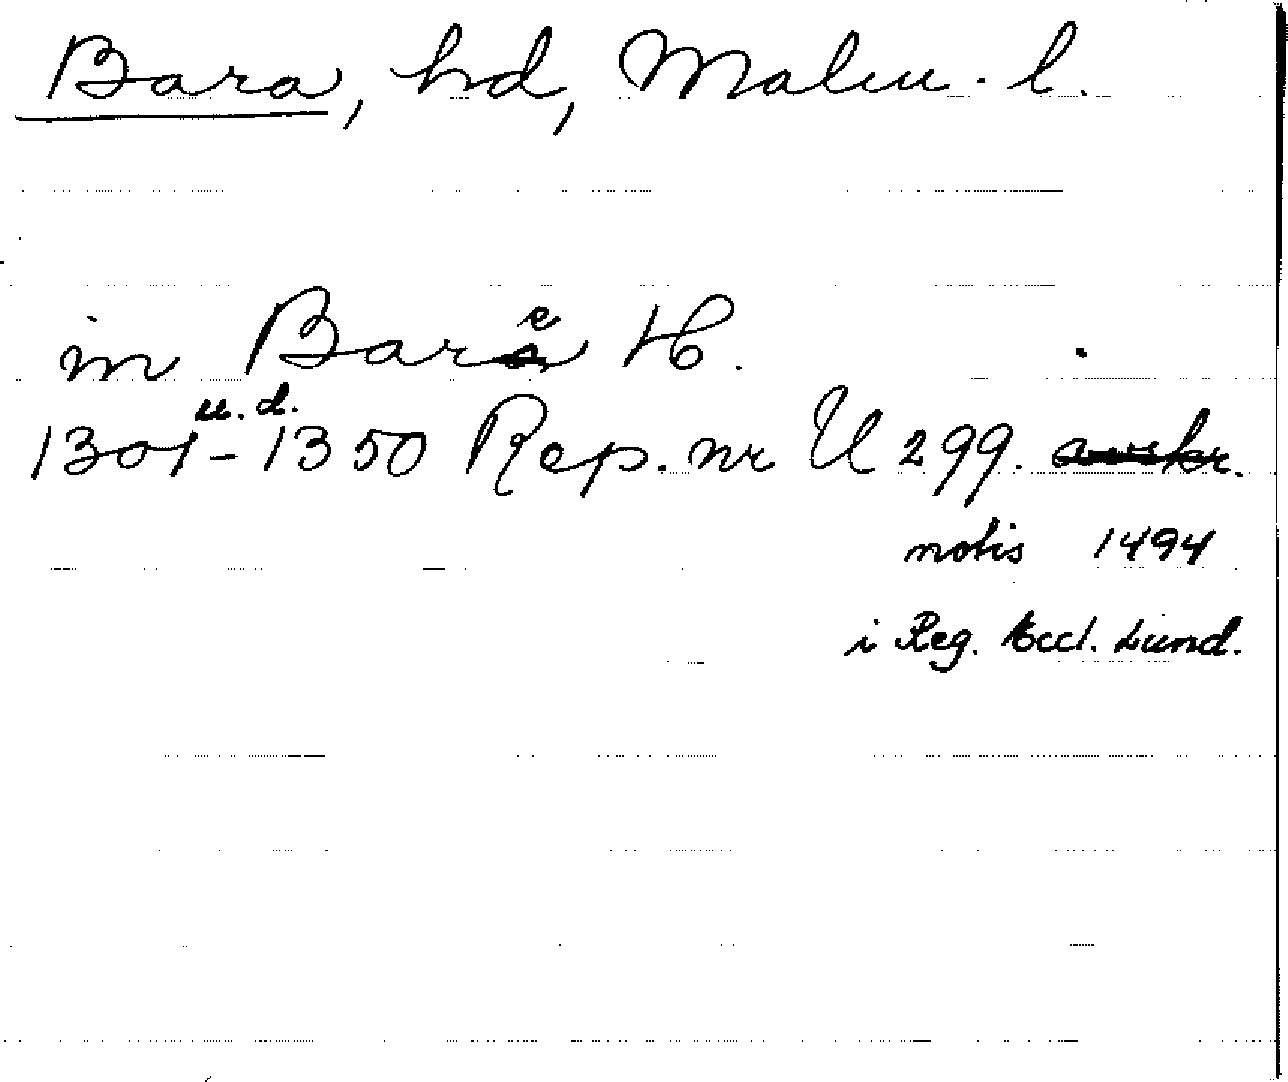 Bara, hd, Malm. l.
in Bare H.
u. d.
1301-1350 Rep. nr U 299. avskr.
notis 1494
i Reg. Eccl. Lund.